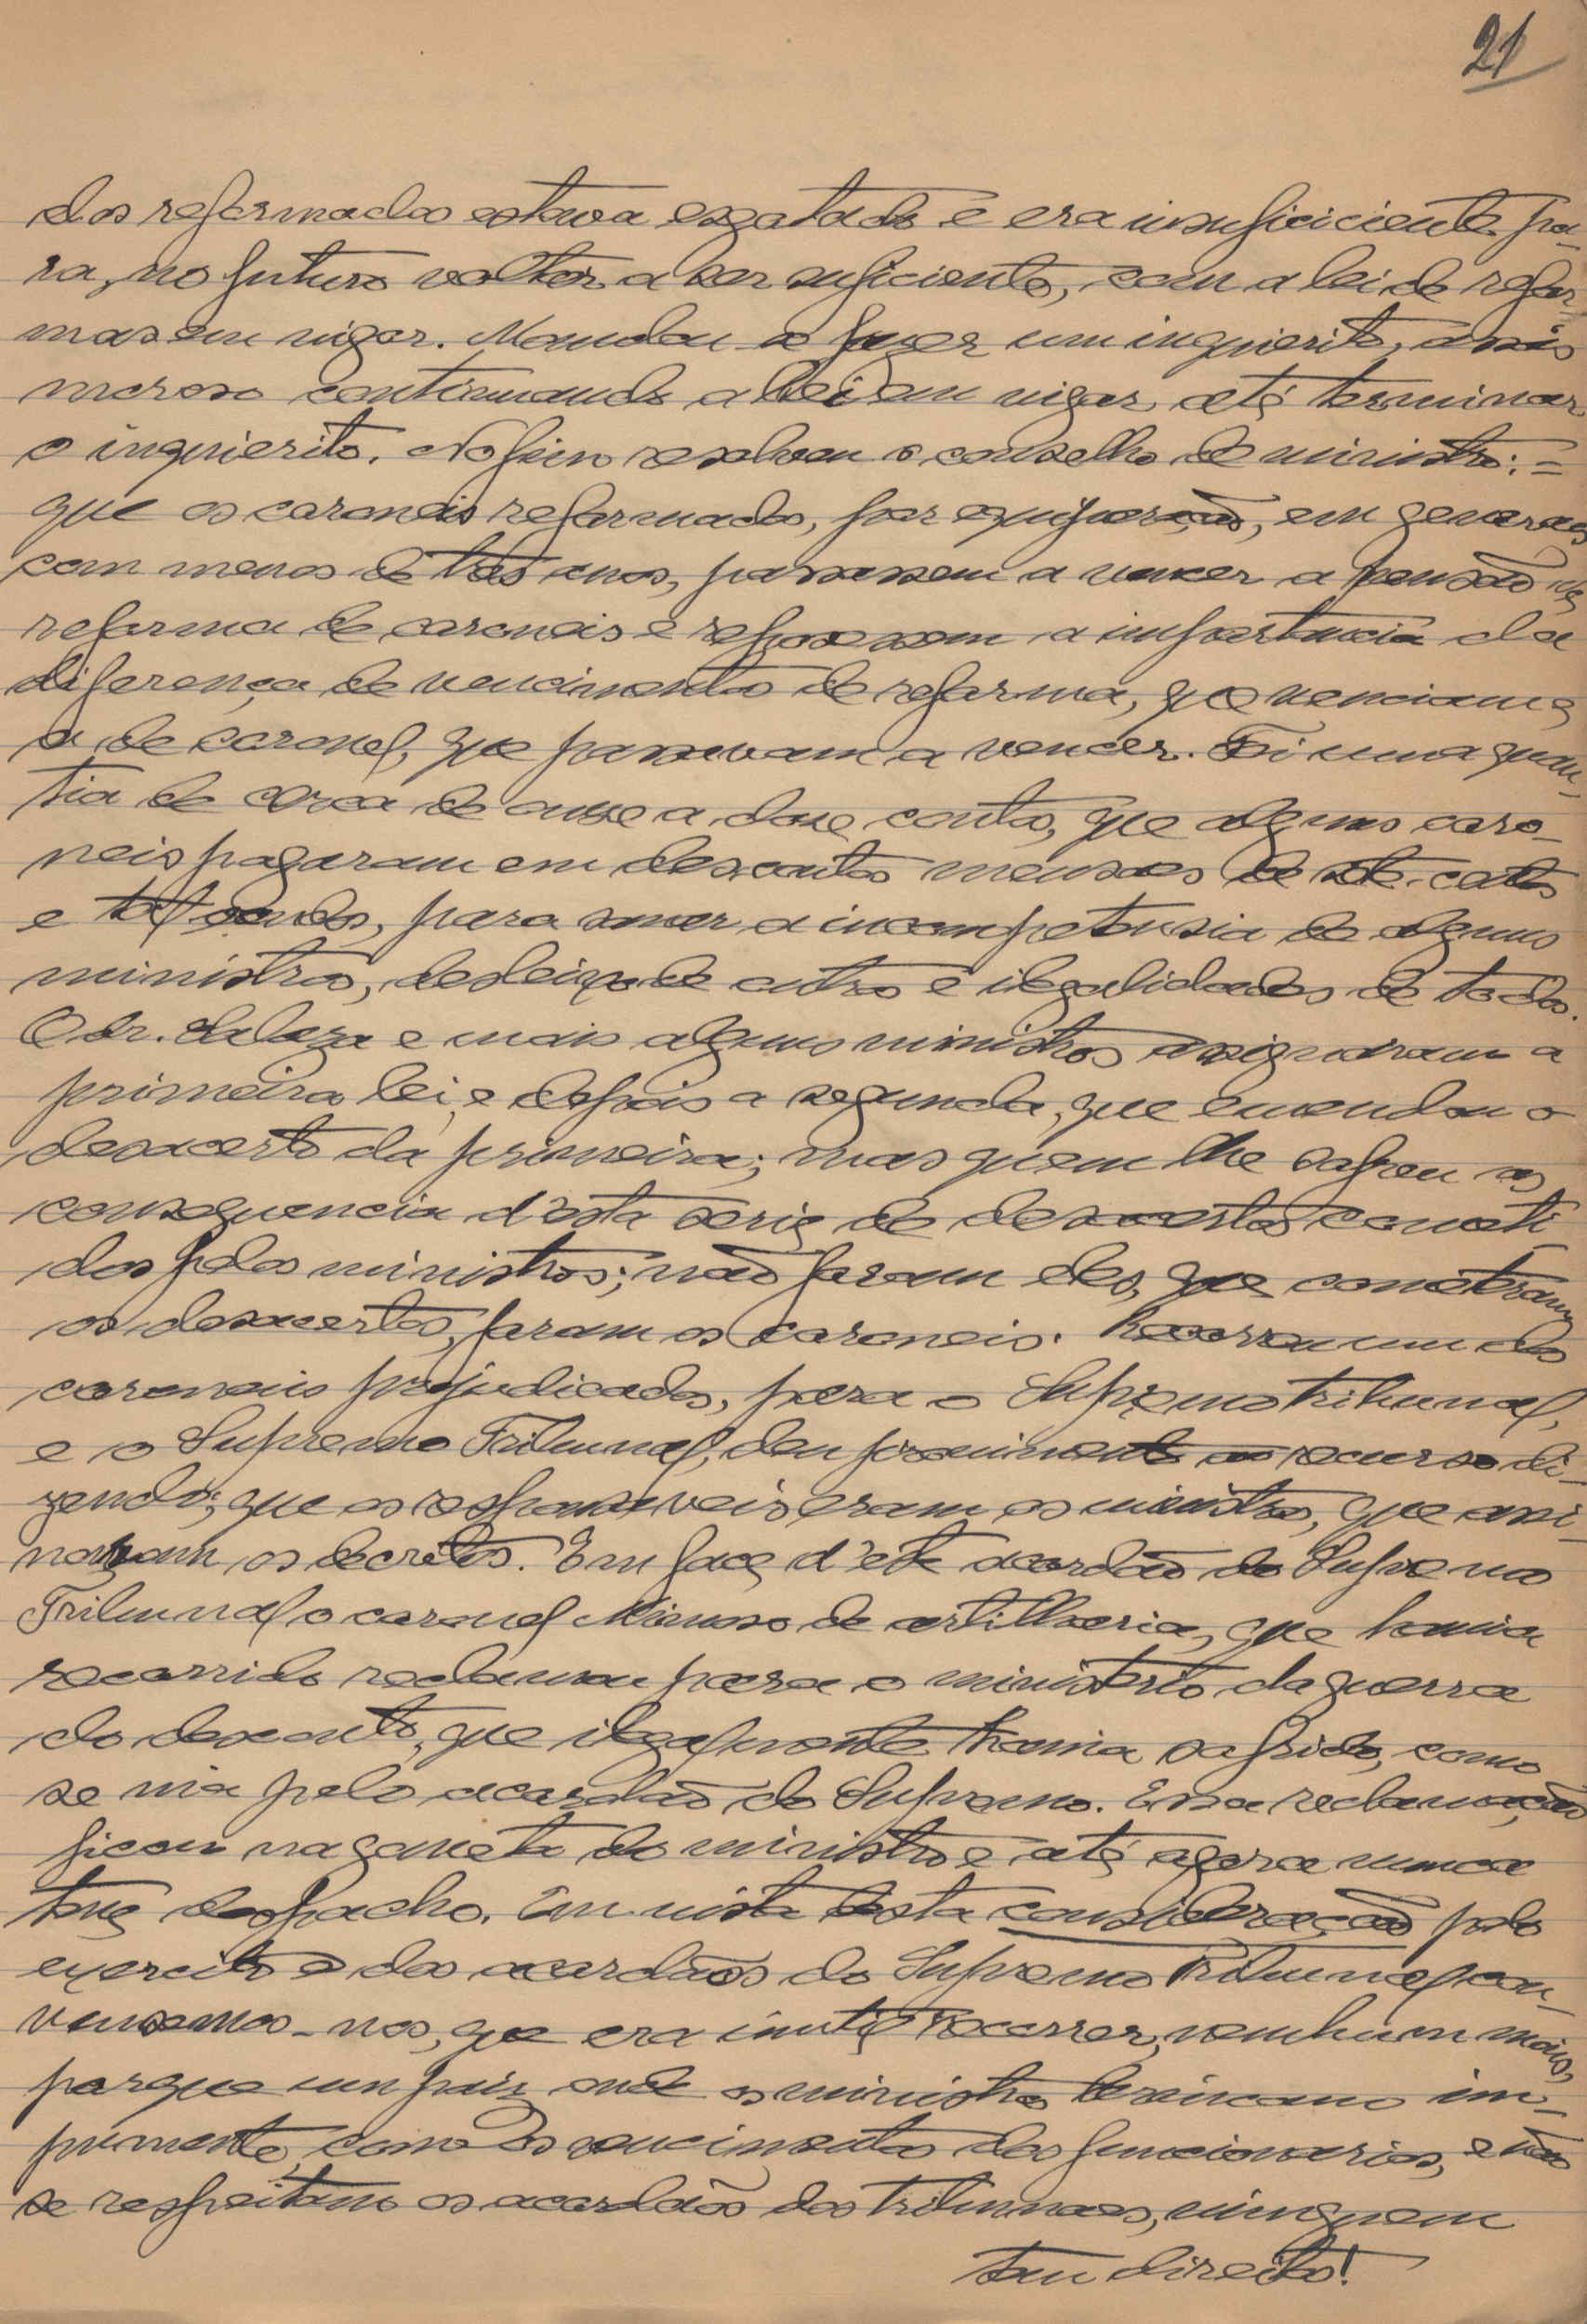 21
dos reformados estava esgotado e era insuficiciente pa-
ra, no futuro voltar a ser suficiente, com a lei de refor
mas em vigor. Mandou se fazer um inquierito,
moroso continuando a lei em vigor até terminar
o inquierito. No fim resolveu o conselho de ministro: =
que os coroneis reformados, por equiparação, em generaes
com menos de tres anos, passassem a vencer a pensão de
reforma de coroneis e repozessem a importancia da
diferença de vencimentos de reforma, que venciam e
a de coronel, que passavam a vencer. Foi uma quan-
tia de cerca de onze a doze contos, que alguns coro-
neis pagaram em descontos mensaes de
e para a incompetensia de alguns
ministros, desleixo de outros e ilegalidades de todos.
O dr. Salazar e mais alguns ministros assignaram a
primeira lei, e depois a segunda, que emendou o
desacerto da primeira; mas quem lhe sofreu as
consequencia d'esta serie de desacertos cometi
dos pelos ministros; não foram eles, que cometeram
os desacertos, foram os coroneis. Recorreu um dos
coroneis prejudicados, para o Supremo tribunal,
e o Supremo Tribunal, deu provimento ao recurso di-
zendo; que os responsaveis eram os ministros, que assi-
navam os decretos. Em face d'este acordão do Supremo
Tribunal o coronel Mimoso de artilharia, que havia
recorrido reclamou para o ministerio da guerra
do desconto, que ilegalmente havia sofrido, como
se via pelo acordão do Supremo. Essa reclamação
ficou na gaveta do ministro e até agora nunca
teve despacho. Em vista desta consideração pelo
exercito e dos acordãos do Supremo Tribunal con-
vensemos-nos, que era inutil recorrer, nenhum mais,
porque um paiz onde os ministros brincam im-
punemente, com os vencimentos dos funcionarios, e não
se respeitam os acordãos dos tribunaes, ninguem
tem direito!